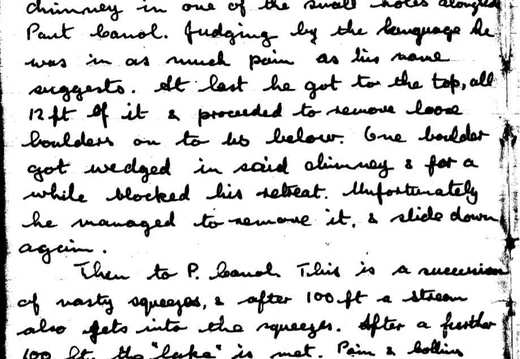 chimney in one of the small holes alongside
Pant Canol. Judging by the language he
was in as much pain as his name
suggests. At last he got to the top, all
12 ft of it & proceeded to remove loose
boulders on to us below. One boulder
got wedged in said chimney & for a
while blocked his retreat. Unfortunately
he managed to remove it, & slide down
again.
Then to P. Canol. This is a succession
of nasty squeezes, & after 100 ft a stream
also gets into the squeezes. After a further
100 ft the "lake" is met. Pain & Collins